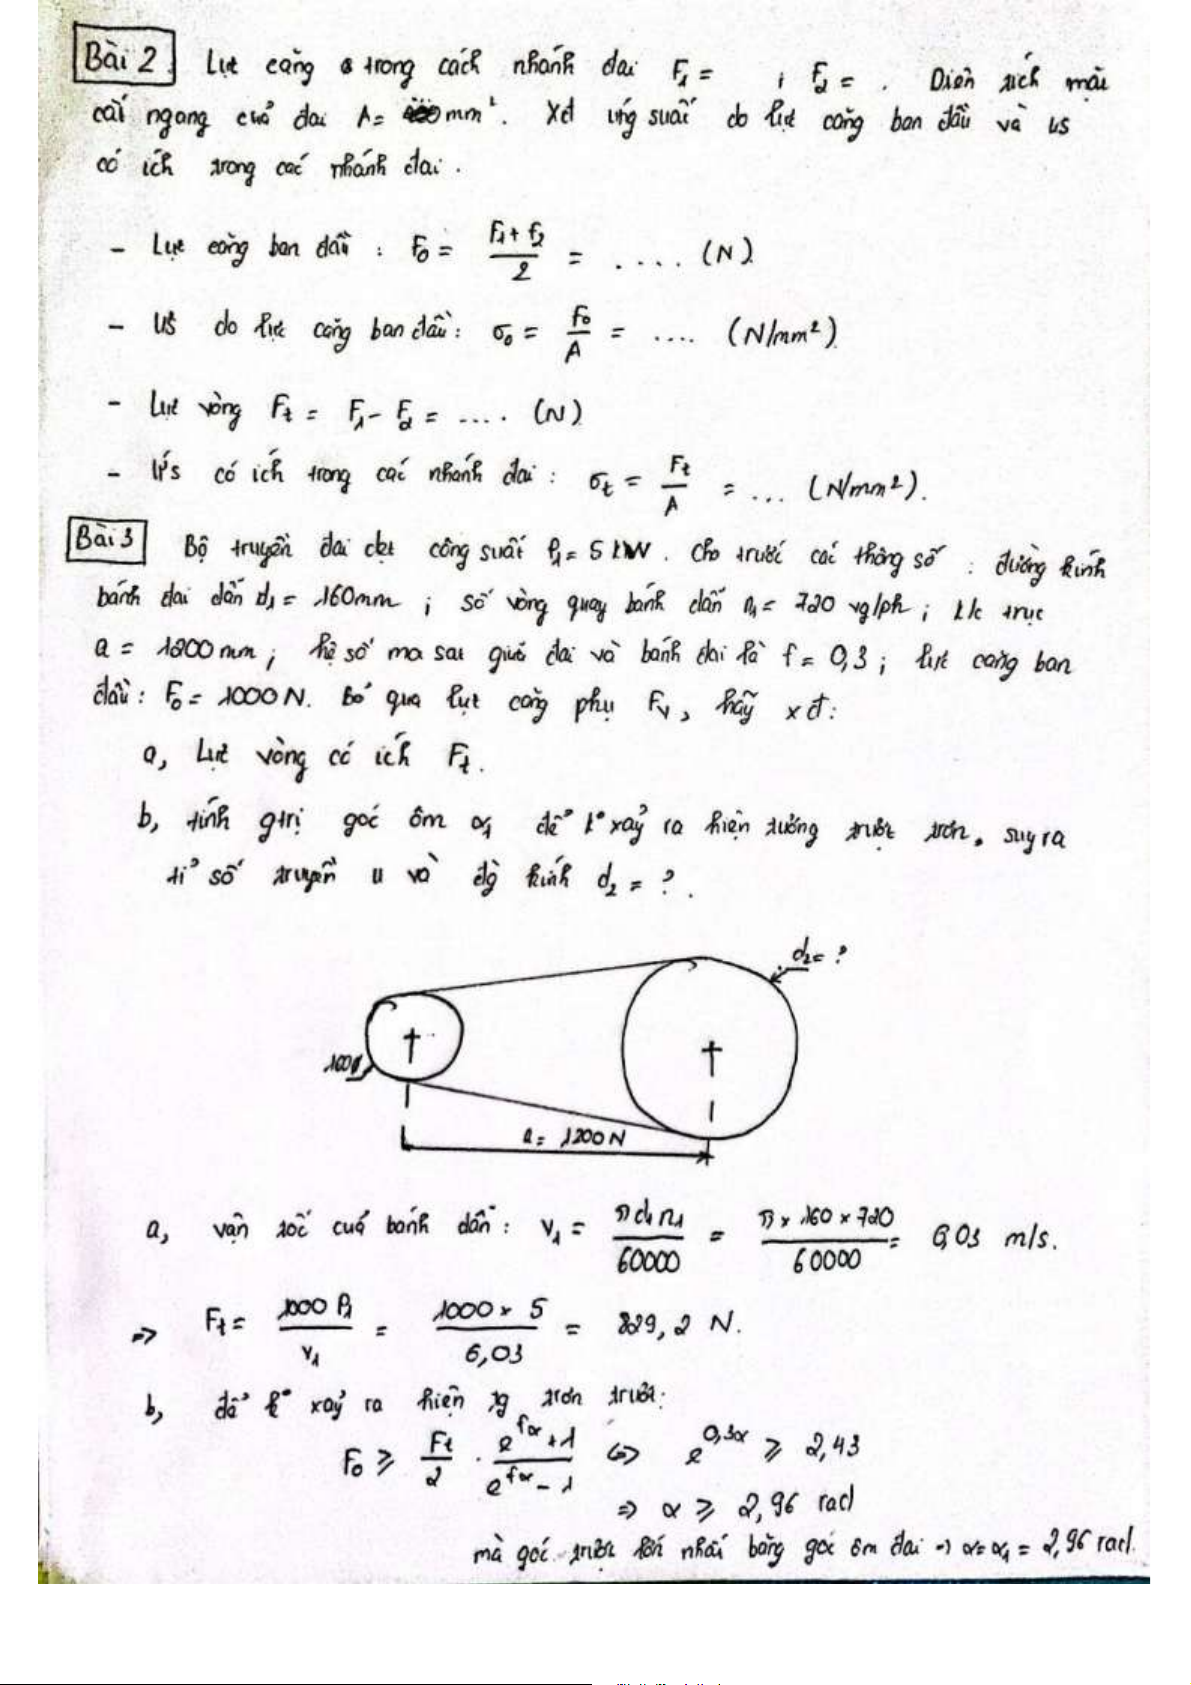 Bài 2 Lực căng trong cách nhánh đai F₁ = ; F₂ = . Diện tích mặt
cắt ngang của đai A = mm². Xđ ứng suất do lực căng ban đầu và ưs
có ích trong các nhánh đai.
- Lực căng ban đầu : F₀ = (F₁ + F₂)/2 = ..... (N)
- ƯS do lực căng ban đầu: σ₀ = F₀/A = .... (N/mm²)
- Lực vòng Fₜ = F₁ - F₂ = .... (N)
- Ưs có ích trong các nhánh đai : σₜ = Fₜ/A = ... (N/mm²).
Bài 3 Bộ truyền đai dẹt công suất P₁ = 5 kW. Cho trước các thông số : đường kính
bánh đai dẫn d₁ = 160mm ; số vòng quay bánh dẫn n₁ = 720 vg/ph ; k/c trục
a = 1200 mm ; hệ số ma sát giữa đai và bánh đai là f = 0,3 ; lực căng ban
đầu : F₀ = 1000 N. Bỏ qua lực căng phụ Fᵥ, hãy xđ:
a, Lực vòng có ích Fₜ.
b, tính gtrị góc ôm α₁ để k° xảy ra hiện tượng trượt trơn. suy ra
tỉ số truyền u và đg kính d₂ = ?.
d₂ = ?
a = 1200N
a, vận tốc của bánh dẫn : v₁ = πd₁n₁/60000 = π × 160 × 720/60000 = 6,03 m/s.
=> Fₜ = 1000 P₁/v₁ = 1000 × 5/6,03 = 829,2 N.
b, để k° xảy ra hiện tg trơn trượt:
F₀ ⩾ Fₜ/2 . (e^fα + 1)/(e^fα - 1) <=> e^0,3α ⩾ 2,43
=> α ⩾ 2,96 rad
mà góc trượt lớn nhất bằng góc ôm đai => α = α₁ = 2,96 rad.